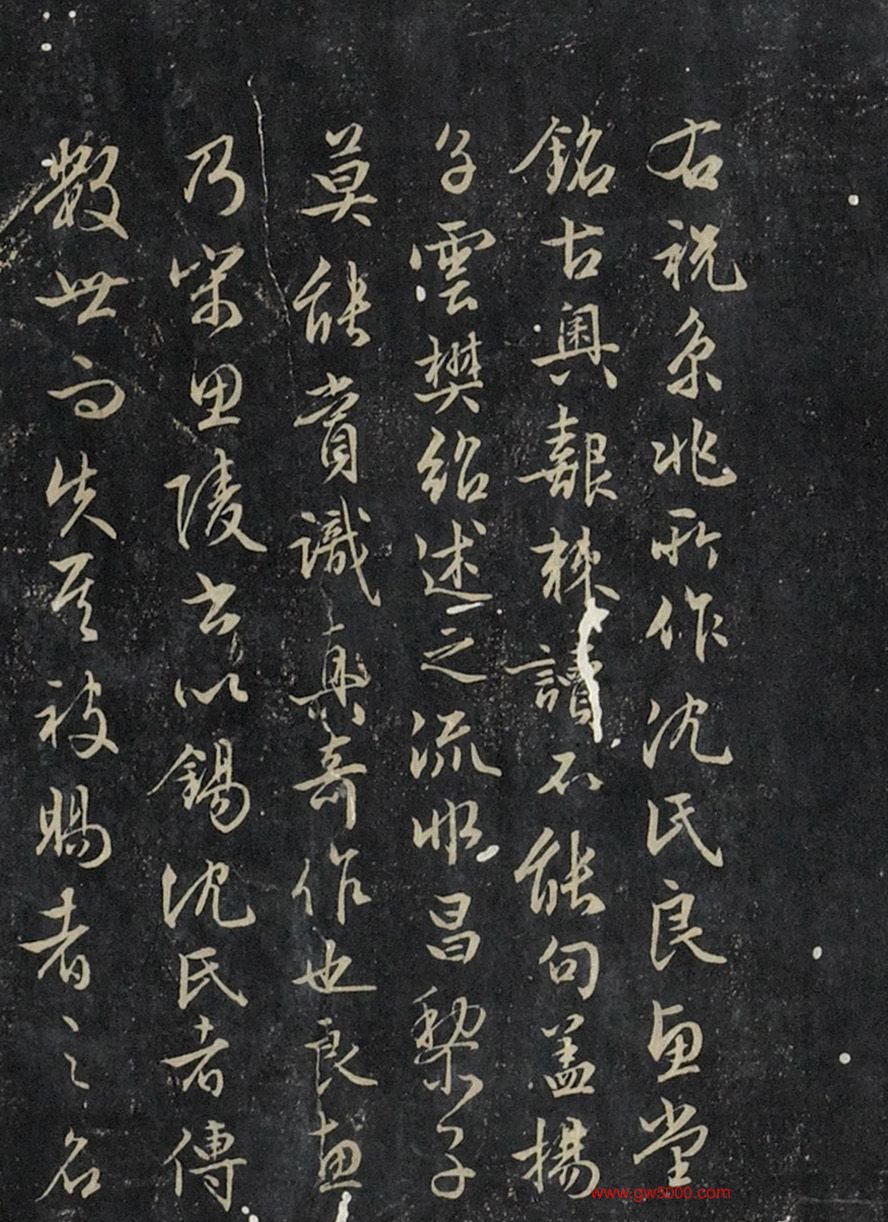 右祝京兆所作沈氏良惠堂
銘古奧艱棘讀不能句盖揚
子雲樊紹述之流非昌黎子
莫能賞識真奇作也良惠
乃宋思陵書以錫沈氏者傳
數世而失其被賜者之名
www.gw5000.com